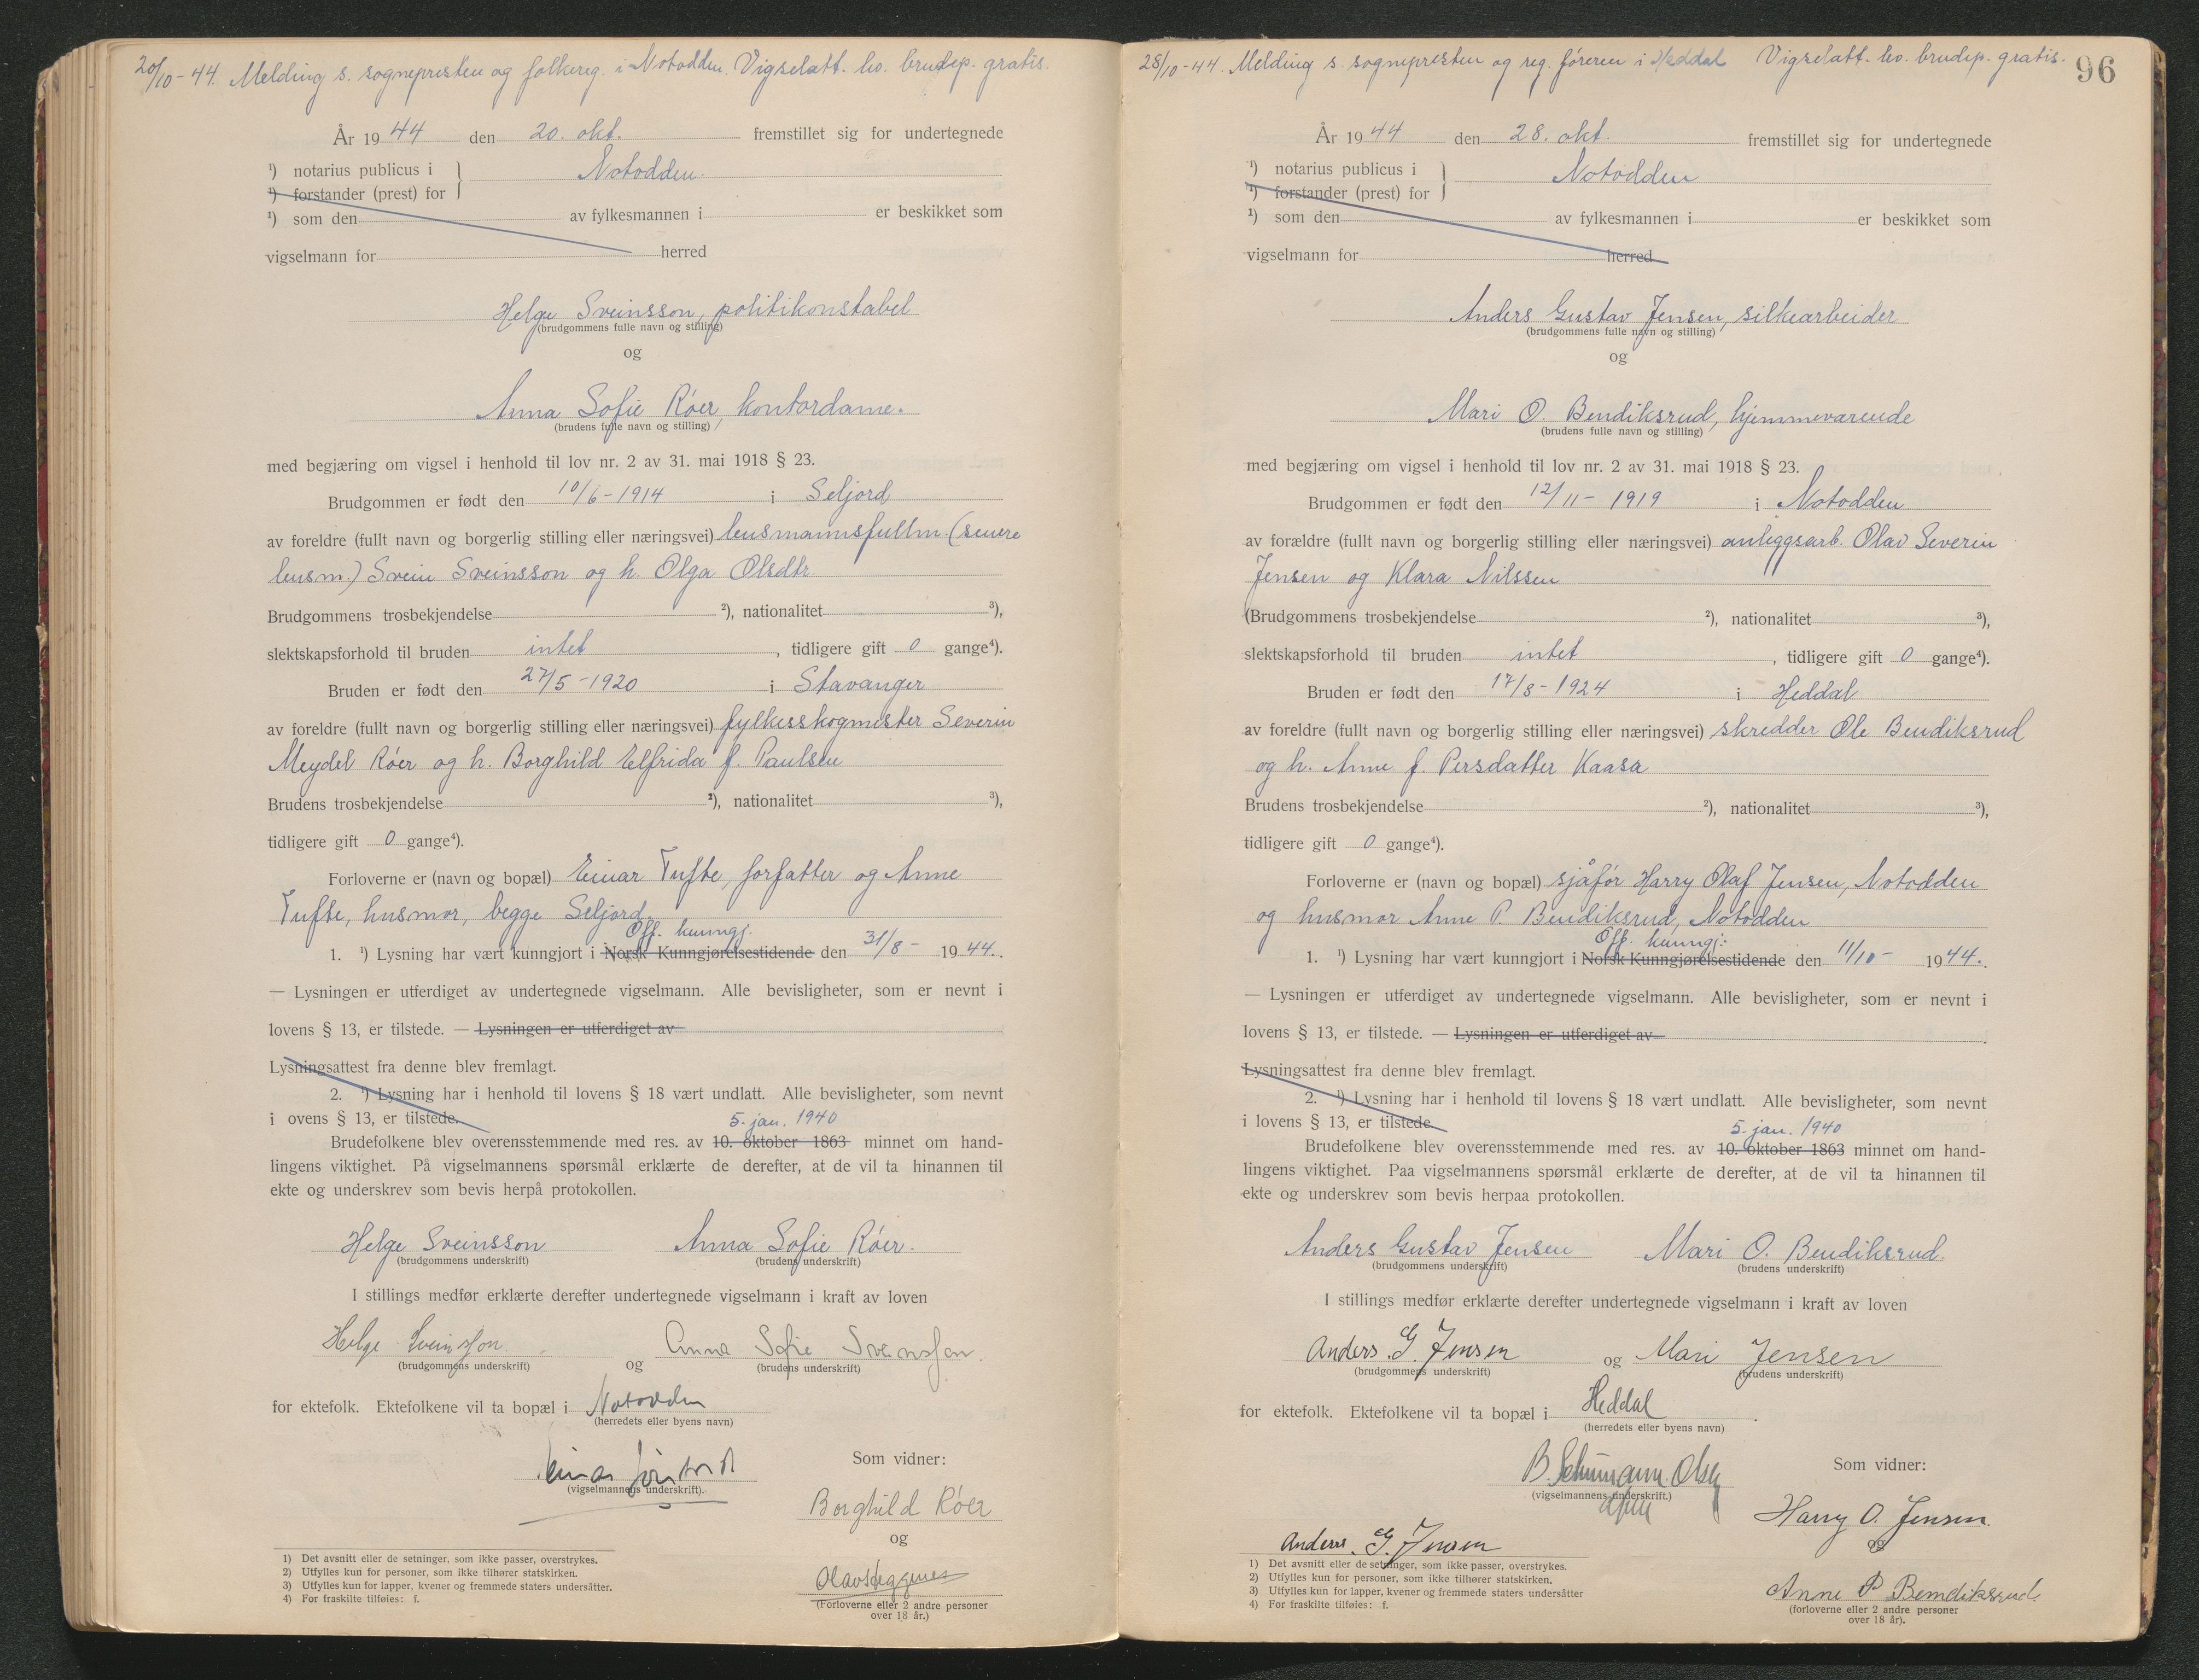 20/10-44. Melding s. sognepresten og folkereg. i Notodden. Vigselatt. lev. brudep. gratis.
År 1944 den 20. okt. fremstillet sig for undertegnede
¹) notarius publicus i } Notodden.
¹) forstander (prest) for
¹) som den av fylkesmannen i er beskikket som
vigselmann for herred
Helge Sveinsson, politikonstabel
(brudgommens fulle navn og stilling)
og
Anna Sofie Róer, kontordame.
(brudens fulle navn og stilling)
med begjæring om vigsel i henhold til lov nr. 2 av 31. mai 1918 § 23.
Brudgommen er født den 10/6-1914 i Seljord
av foreldre (fullt navn og borgerlig stilling eller næringsvei) lensmannsfullm. (senere
lensm.) Svein Sveinsson og h. Olga Olsdtr
Brudgommens trosbekjendelse ²), nationalitet ³),
slektskapsforhold til bruden intet, tidligere gift 0 gange⁴).
Bruden er født den 27/5-1920 i Stavanger
av foreldre (fullt navn og borgerlig stilling eller næringsvei) fylkesskogmester Severin
Meydel Róer og h. Borghild Elfrida f. Paulsen
Brudens trosbekjendelse ²), nationalitet ³),
tidligere gift 0 gange⁴).
Forloverne er (navn og bopæl) Einar Tufte, forfatter og Anne
Tufte, husmor, begge Seljord.
Off. kunngj.
1. ¹) Lysning har vært kunngjort i Norsk Kunngjørelsestidende den 31/8- 1944.
— Lysningen er utferdiget av undertegnede vigselmann. Alle bevisligheter, som er nevnt i
lovens § 13, er tilstede. — Lysningen er utferdiget av
Lysningsattest fra denne blev fremlagt.
2. ¹) Lysning har i henhold til lovens § 18 vært undlatt. Alle bevisligheter, som nevnt
i ovens § 13, er tilstede.
5. jan. 1940
Brudefolkene blev overensstemmende med res. av 10. oktober 1863 minnet om hand-
lingens viktighet. På vigselmannens spørsmål erklærte de derefter, at de vil ta hinannen til
ekte og underskrev som bevis herpå protokollen.
Helge Sveinsson Anna Sofie Róer.
(brudgommens underskrift) (brudens underskrift)
I stillings medfør erklærte derefter undertegnede vigselmann i kraft av loven
Helge Sveinsson og Anna Sofie Sveinsson.
(brudgommens underskrift) (brudens underskrift)
for ektefolk. Ektefolkene vil ta bopæl i Notodden
(herredets eller byens navn)
Som vidner:
(vigselmannens underskrift).
Borghild Róer
og
(Forloverne eller 2 andre personer
over 18 år.)
1) Det avsnitt eller de setninger, som ikke passer, overstrykes.
2) Utfylles kun for personer, som ikke tilhører statskirken.
3) Utfylles kun for lapper, kvener og fremmede staters undersåtter.
4) For fraskilte tilføies: f.
28/10-44. Melding s. sognepresten og reg. føreren i Heddal Vigselatt. lev. brudep. gratis.
96
År 1944 den 28. okt. fremstillet sig for undertegnede
¹) notarius publicus i } Notodden
¹) forstander (prest) for
¹) som den av fylkesmannen i er beskikket som
vigselmann for herred
Anders Gustav Jensen, silkearbeider
(brudgommens fulle navn og stilling)
og
Mari O. Bendiksrud, hjemmeværende
(brudens fulle navn og stilling)
med begjæring om vigsel i henhold til lov nr. 2 av 31. mai 1918 § 23.
Brudgommen er født den 12/11-1919 i Notodden
av forældre (fullt navn og borgerlig stilling eller næringsvei) anleggsarb. Olav Severin
Jensen og Klara Nilssen
(Brudgommens trosbekjendelse ²), nationalitet ³),
slektskapsforhold til bruden intet, tidligere gift 0 gange⁴).
Bruden er født den 17/8-1924 i Heddal
av foreldre (fullt navn og borgerlig stilling eller næringsvei) skredder Ole Bendiksrud
og h. Anne f. Persdatter Kaasa
Brudens trosbekjendelse ²), nationalitet ³),
tidligere gift 0 gange⁴).
Forloverne er (navn og bopæl) sjåfør Harry Olaf Jensen, Notodden
og husmor Anne P. Bendiksrud, Notodden
Off. kunngj.
1. ¹) Lysning har vært kunngjort i Norsk Kunngjørelsestidende den 11/10- 1944.
— Lysningen er utferdiget av undertegnede vigselmann. Alle bevisligheter, som er nevnt i
lovens § 13, er tilstede. — Lysningen er utferdiget av
Lysningsattest fra denne blev fremlagt.
2. ¹) Lysning har i henhold til lovens § 18 vært undlatt. Alle bevisligheter, som nevnt
i lovens § 13, er tilstede.
5. jan. 1940
Brudefolkene blev overensstemmende med res. av 10. oktober 1863 minnet om hand-
lingens viktighet. Paa vigselmannens spørsmål erklærte de derefter, at de vil ta hinannen til
ekte og underskrev som bevis herpaa protokollen.
Anders Gustav Jensen Mari O. Bendiksrud.
(brudgommens underskrift) (brudens underskrift)
I stillings medfør erklærte derefter undertegnede vigselmann i kraft av loven
Anders. G. Jensen og Mari Jensen
(brudgommens underskrift) (brudens underskrift)
for ektefolk. Ektefolkene vil ta bopæl i Heddal.
(herredets eller byens navn)
B. Schumann. Olsen
Som vidner:
(vigselmannens underskrift.)
Harry O. Jensen.
og
Anders. G. Jensen
Anne P Bendiksrud.
(forloverne eller 2 andre personer
over 18 år).
1) Det avsnitt eller de setninger, som ikke passer, overstrykes.
2) Utfylles kun for personer, som ikke tilhører statskirken.
3) Utfylles kun for lapper, kvener og fremmede staters undersåtter
4) For fraskilte tilføies: f.